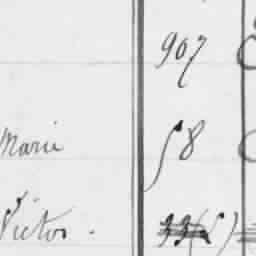 907
Marie 58
Victor.